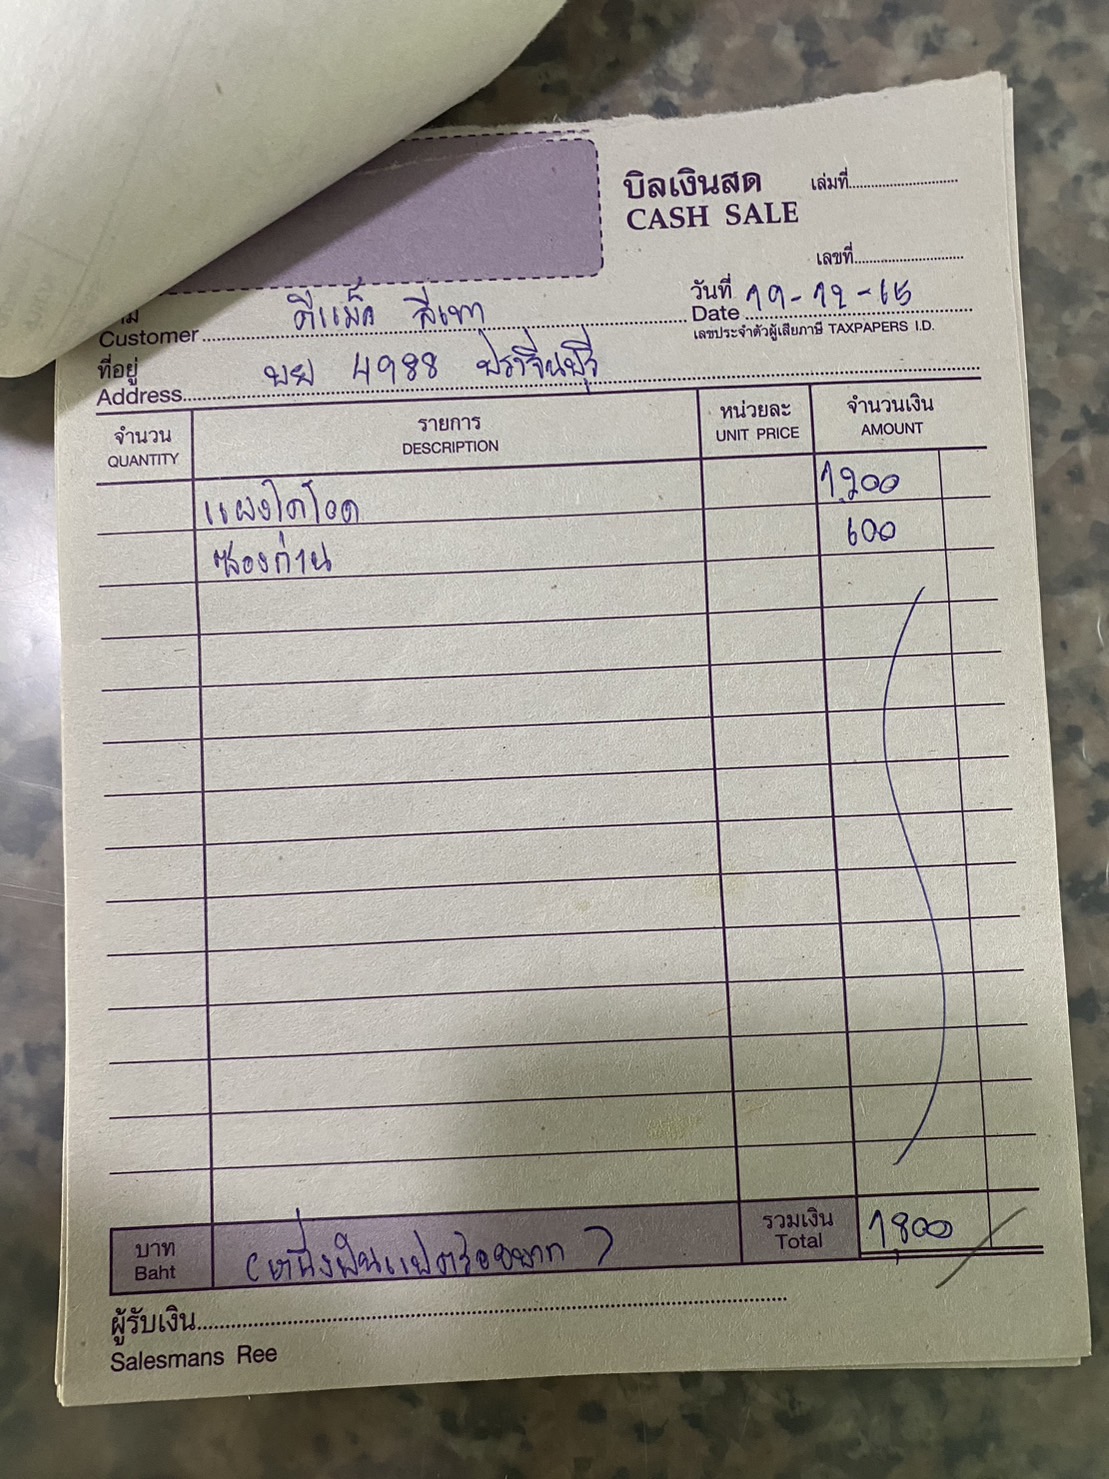 บิลเงินสด เล่มที่
CASH SALE
เลขที่
วันที่ 19-12-65
Date
Customer ดีแม็ค สีเทา
เลขประจำตัวผู้เสียภาษี TAXPAPERS I.D.
ที่อยู่
Address บย 4988 ปราจีนบุรี
จำนวน รายการ หน่วยละ จำนวนเงิน
QUANTITY DESCRIPTION UNIT PRICE AMOUNT
แผงไดโอด 1,200
ซองถ่าน 600
บาท (หนึ่งพันแปดร้อยบาท) รวมเงิน 1,800
Baht Total
ผู้รับเงิน
Salesmans Ree